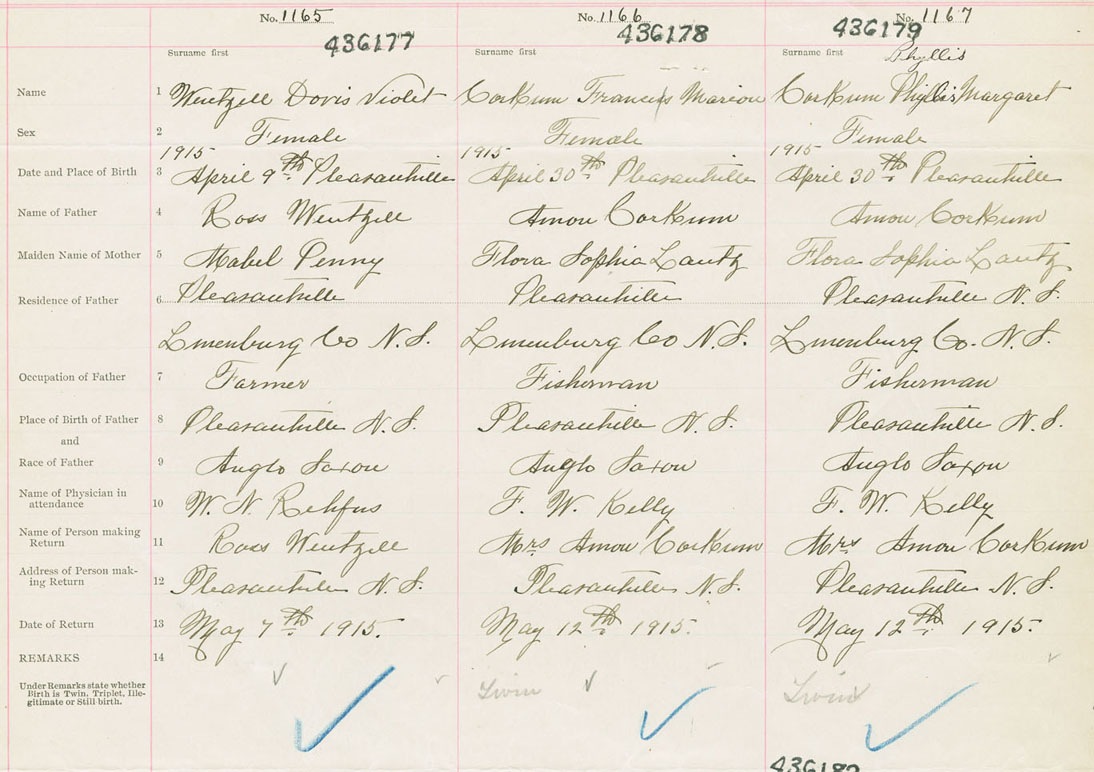 No. 1165 No. 1166 No. 1167
436177 436178 436179
Surname first Surname first Surname first Phyllis
Name 1 Wentzell Doris Violet Corkum Francis Marion Corkum Phyllis Margaret
Sex 2 Female Female Female
1915 1915 1915
Date and Place of Birth 3 April 9th Pleasantville April 30th Pleasantville April 30th Pleasantville
Name of Father 4 Ross Wentzell Amon Corkum Amon Corkum
Maiden Name of Mother 5 Mabel Penny Flora Sophia Lantz Flora Sophia Lantz
Residence of Father 6 Pleasantville Pleasantville Pleasantville N. S.
Lunenburg Co N. S. Lunenburg Co N. S. Lunenburg Co. N. S.
Occupation of Father 7 Farmer Fisherman Fisherman
Place of Birth of Father 8 Pleasantville N. S. Pleasantville N. S. Pleasantville N. S.
and
Race of Father 9 Anglo Saxon Anglo Saxon Anglo Saxon
Name of Physician in
attendance 10 W. N. Rehfus F. W. Kelly F. W. Kelly
Name of Person making
Return 11 Ross Wentzell Mrs Amon Corkum Mrs Amon Corkum
Address of Person mak-
ing Return 12 Pleasantville N. S. Pleasantville N. S. Pleasantville N. S.
Date of Return 13 May 7th 1915. May 12th 1915. May 12th 1915.
REMARKS 14
Under Remarks state whether
Birth is Twin, Triplet, Ille-
gitimate or Still-birth. Twin Twin